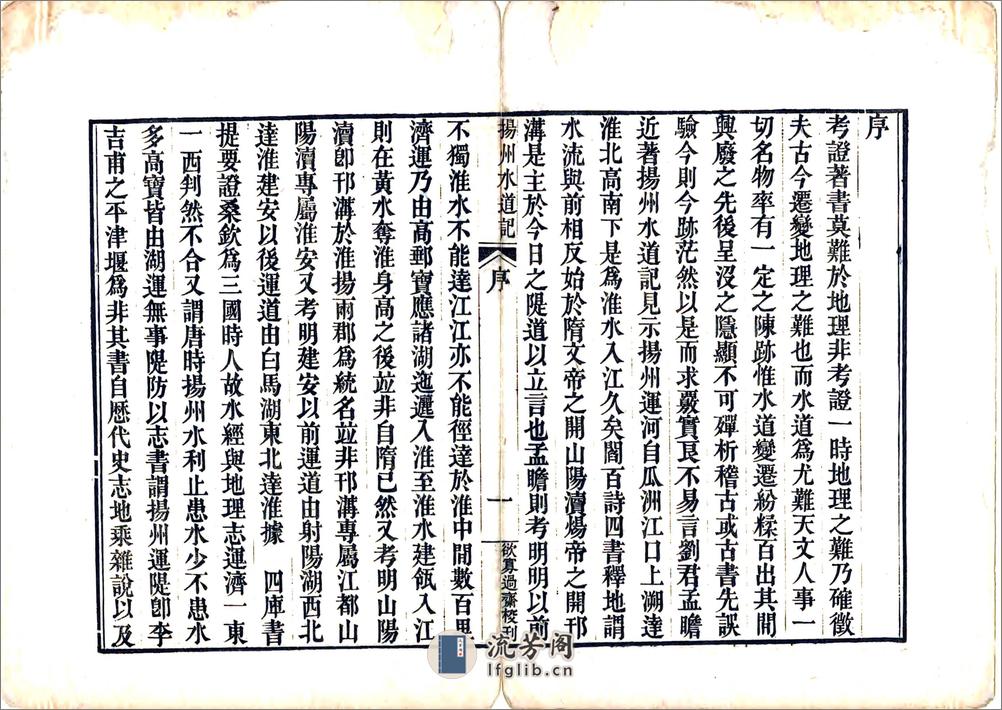 序
考證著書莫難於地理非考證一時地理之難乃確徵
夫古今遷變地理之難也而水道爲尤難天文人事一
切名物率有一定之陳跡惟水道變遷紛糅百出其間
興廢之先後呈沒之隱顯不可殫析稽古或古書先誤
驗今則今跡茫然以是而求覈實良不易言劉君孟瞻
近著揚州水道記見示揚州運河自瓜洲江口上溯達
淮北高南下是爲淮水入江久矣閻百詩四書釋地謂
水流與前相反始於隋文帝之開山陽瀆煬帝之開邗
溝是主於今日之隄道以立言也孟瞻則考明明以前
揚州水道記
序
一
欲寡過齋校刊
不獨淮水不能達江江亦不能徑達於淮中間數百里
濟運乃由高郵寶應諸湖迤邐入淮至淮水建瓴入江
則在黃水奪淮身高之後並非自隋已然又考明山陽
瀆卽邗溝於淮揚兩郡爲統名並非邗溝專屬江都山
陽瀆專屬淮安又考明建安以前運道由射陽湖西北
達淮建安以後運道由白馬湖東北達淮據 四庫書
提要證桑欽爲三國時人故水經與地理志運濟一東
一西判然不合又謂唐時揚州水利止患水少不患水
多高寶皆由湖運無事隄防以志書謂揚州運隄卽李
吉甫之平津堰爲非其書自歷代史志地乘雜說以及
流芳阁
lfglib.cn